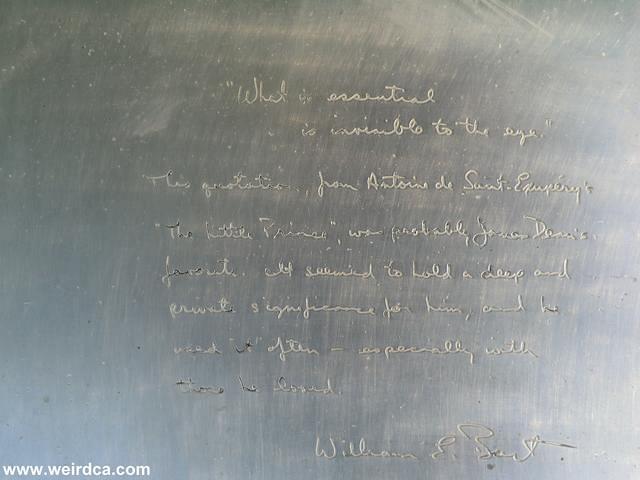 "What is essential
is invisible to the eye."
This quotation, from Antoine de Saint-Exupéry's
"The Little Prince", was probably James Dean's
favorite. It seemed to hold a deep and
private significance for him, and he
used "it" often - especially with
those he loved.
William E. Bast
www.weirdca.com